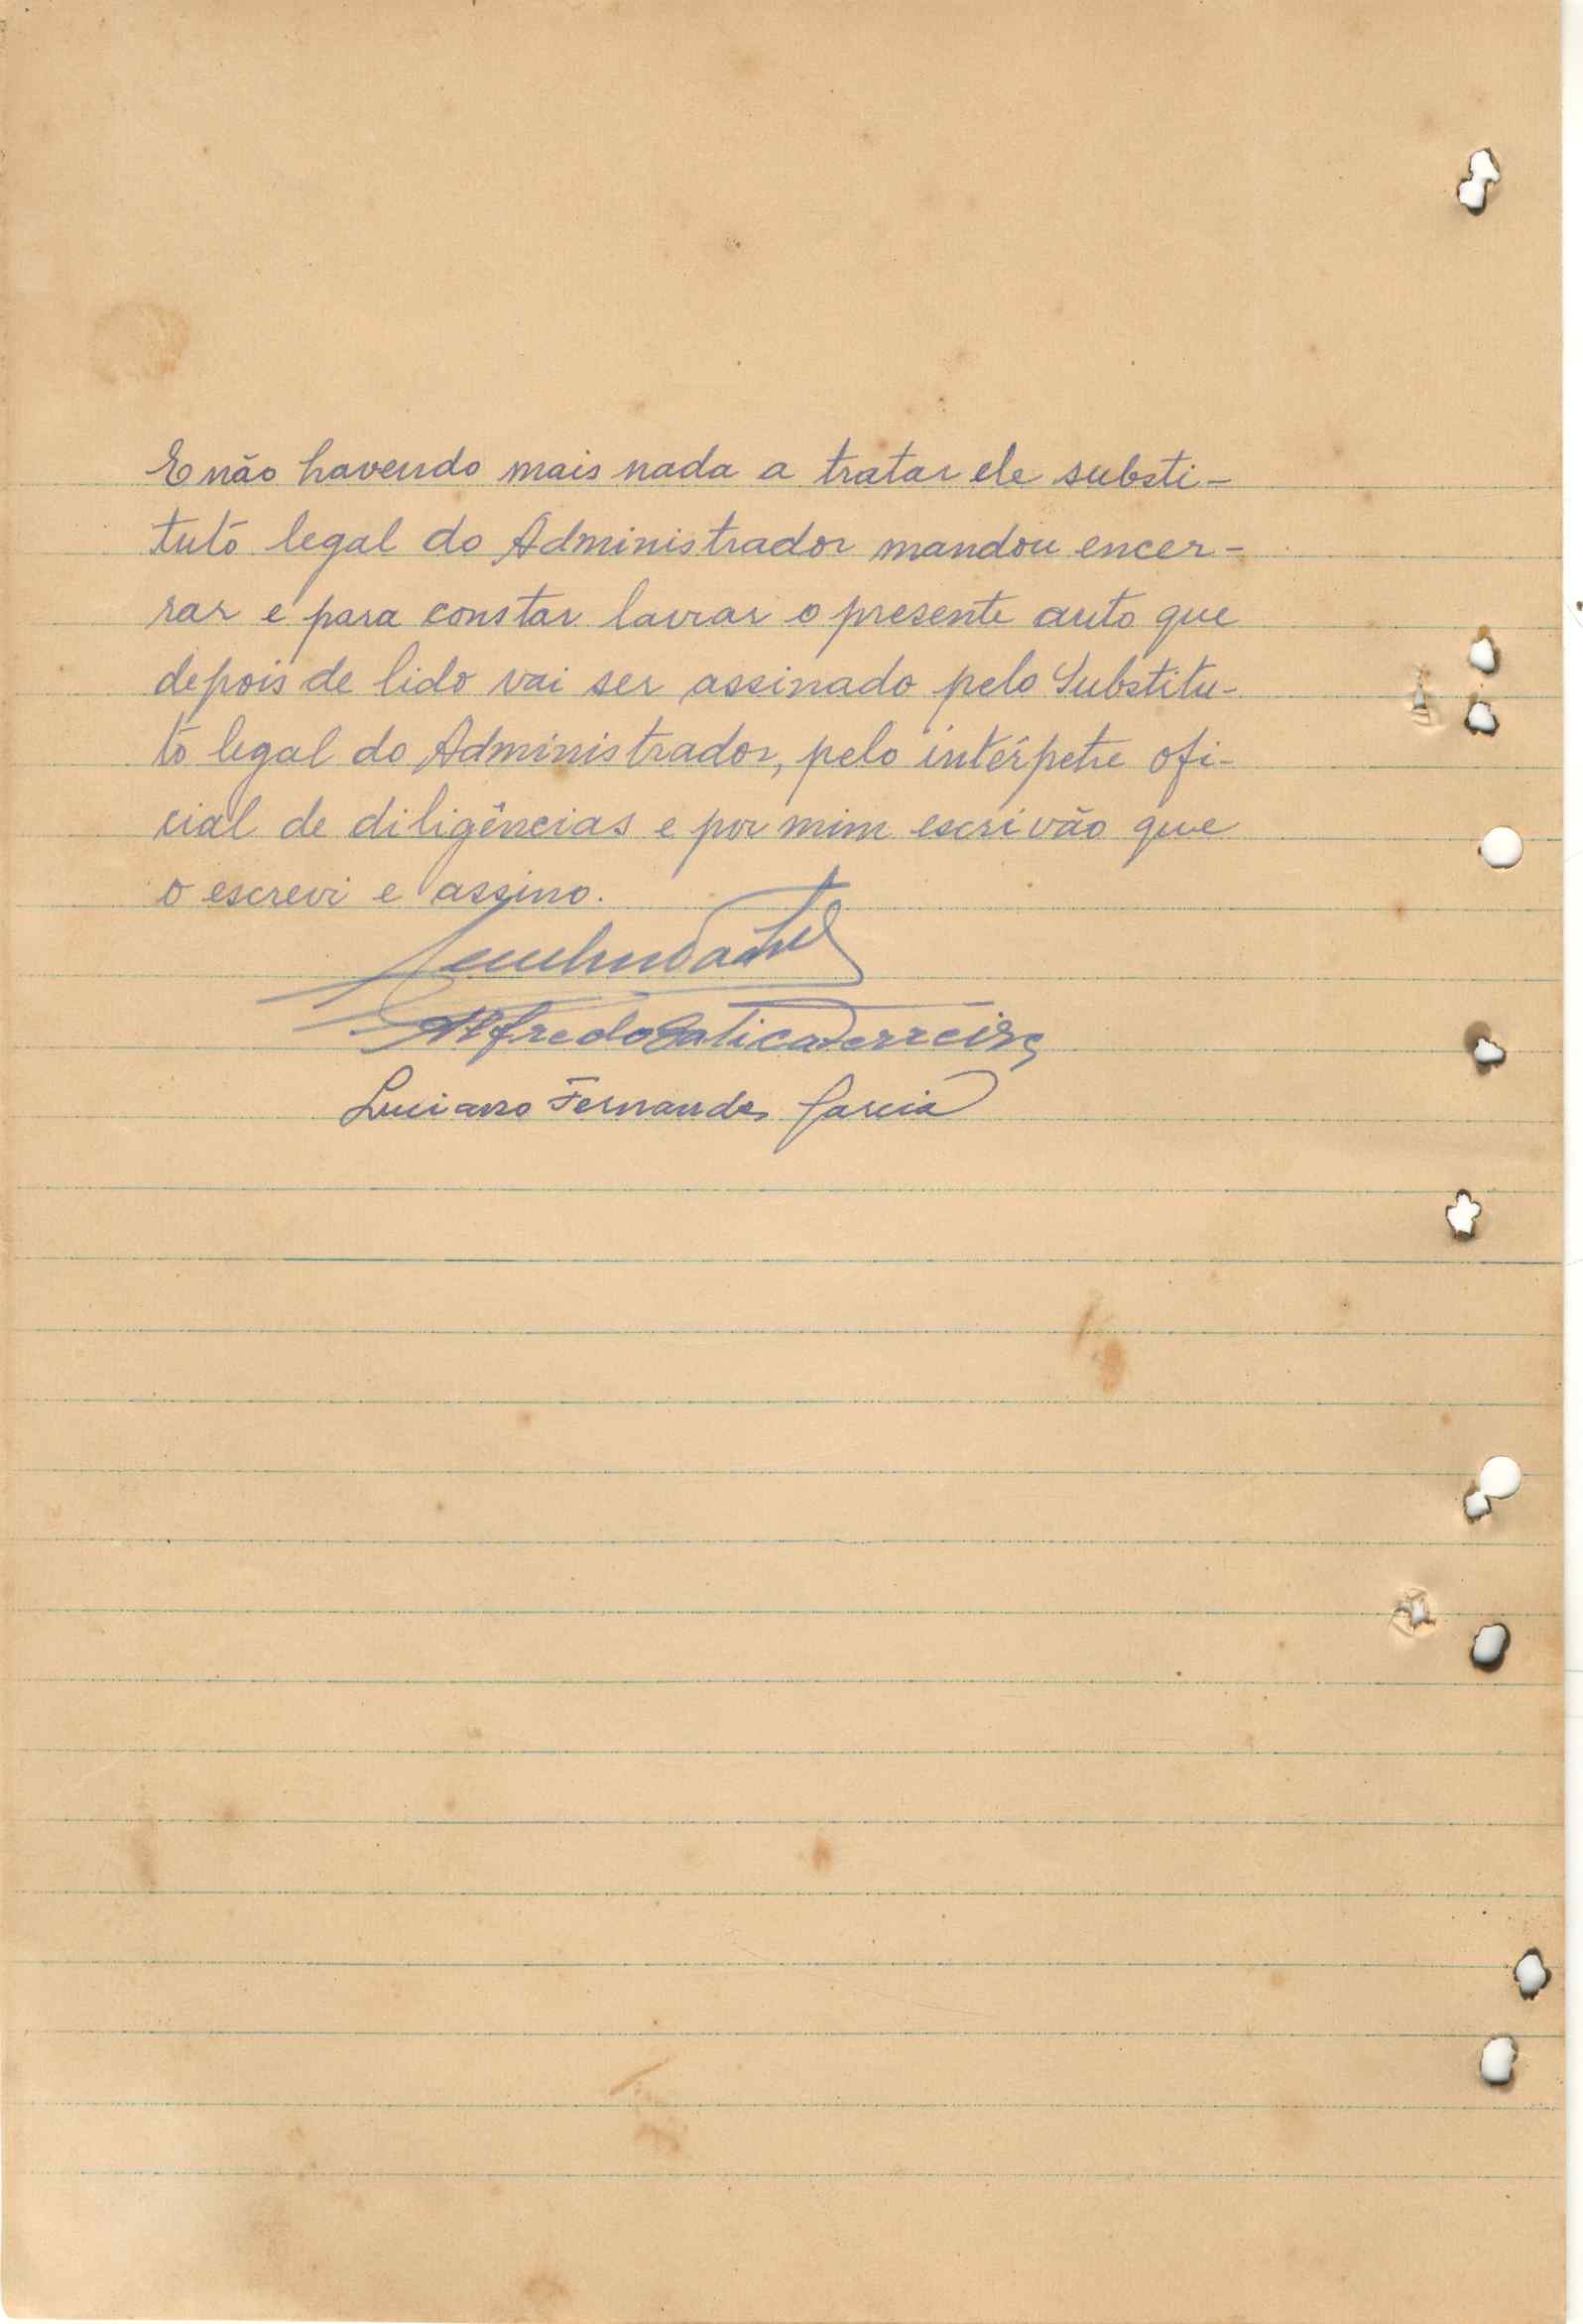 E não havendo mais nada a tratar ele substi-
tuto legal do Administrador mandou encer-
rar e para constar lavrar o presente auto que
depois de lido vai ser assinado pelo Substitu-
to legal do Administrador, pelo intérpetre ofi-
cial de diligências e por mim escrivão que
o escrevi e assino.
Alfredo Ferreira
Luciano Fernandes Garcia